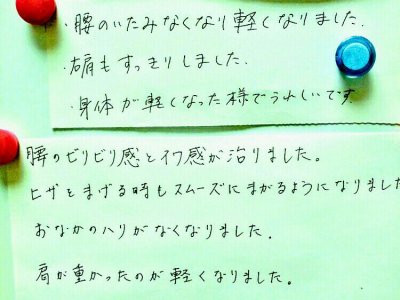 ・腰のいたみなくなり軽くなりました.
・右肩もすっきりしました.
・身体が軽くなった様でうれしいです
腰のビリビリ感とイワ感が治りました。
ヒザをまげる時もスムーズにまがるようになりました
おなかのハリがなくなりました.
肩が重かったのが軽くなりました。